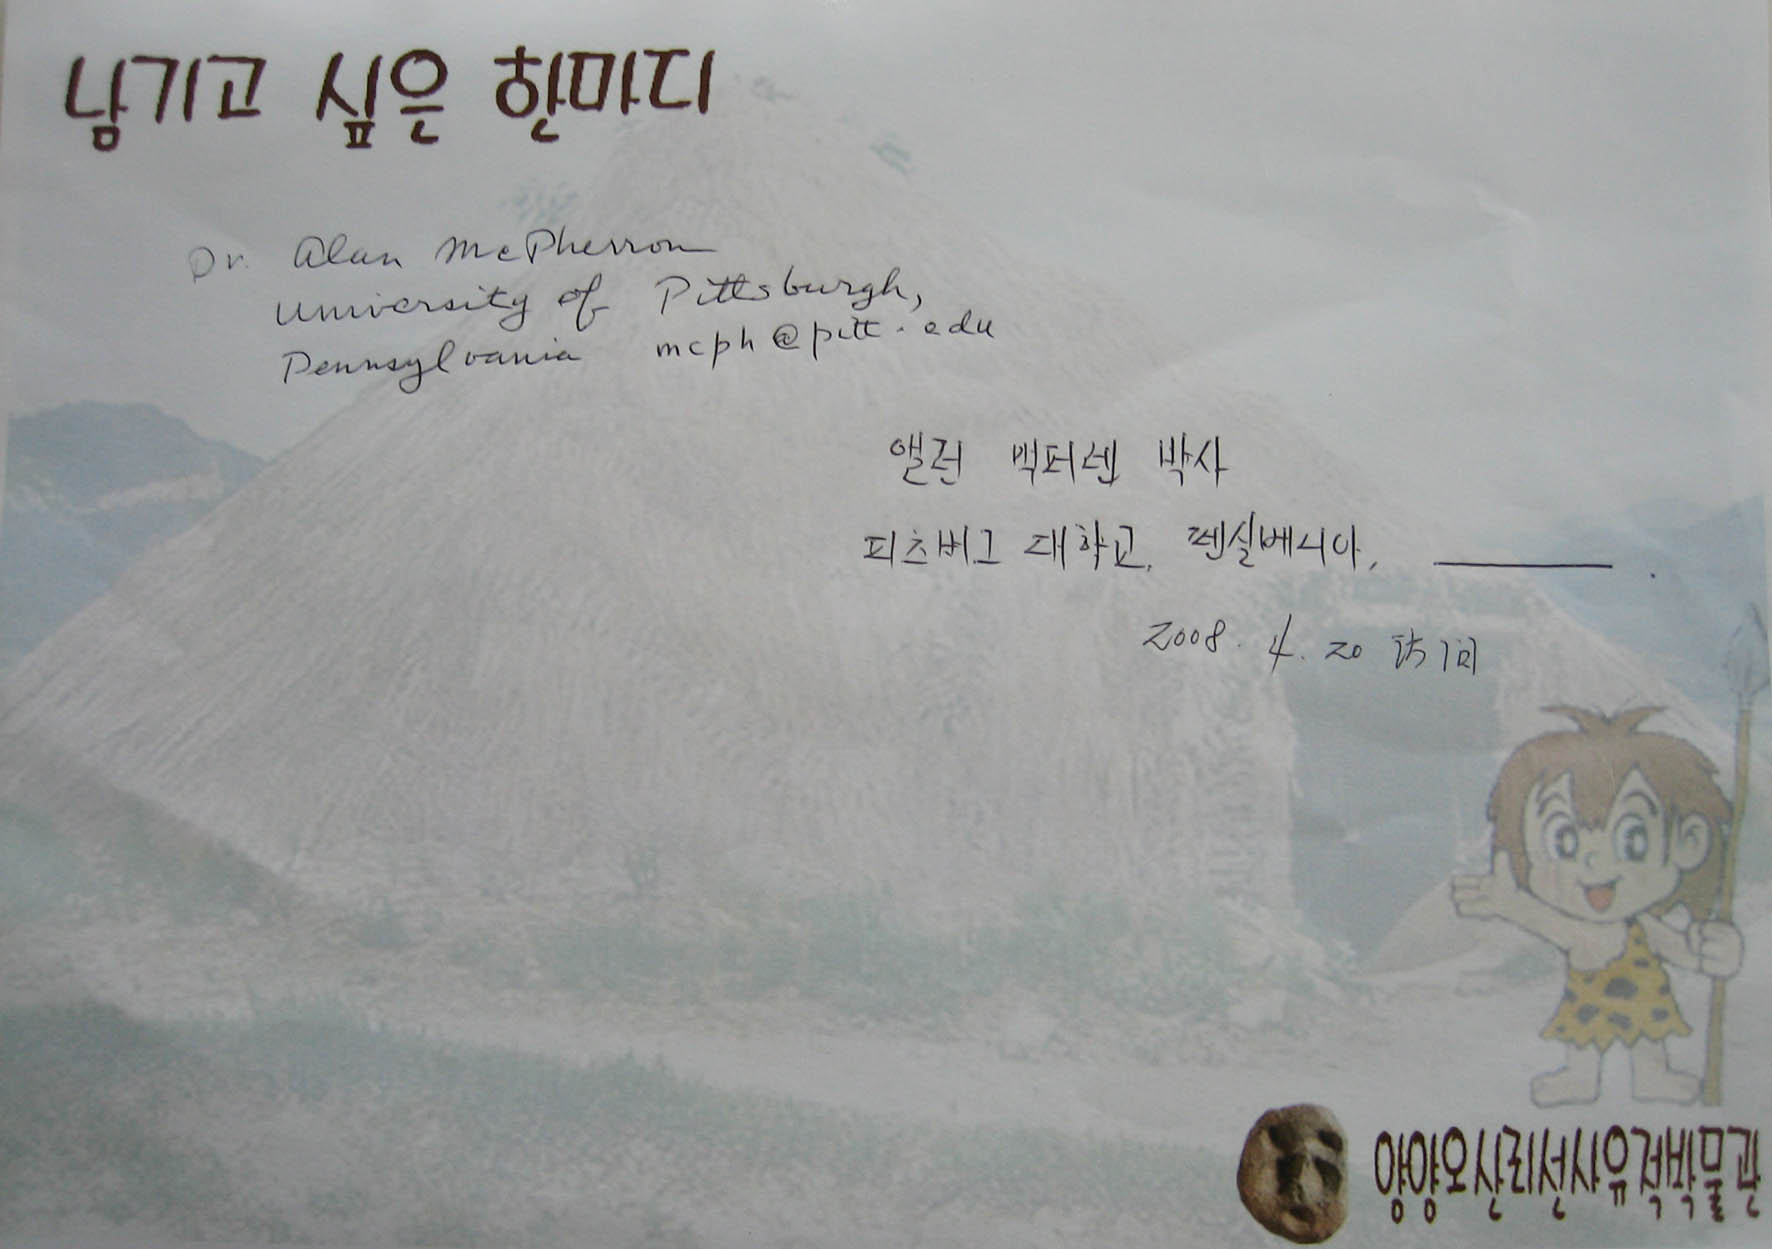 남기고 싶은 한마디
Dr. Alan McPherron
University of Pittsburgh,
Pennsylvania mcph@pitt.edu
앨런 맥퍼센 박사
피츠버그 대학교, 펜실베니아,
2008. 4. 20 访问
양양오산리선사유적박물관